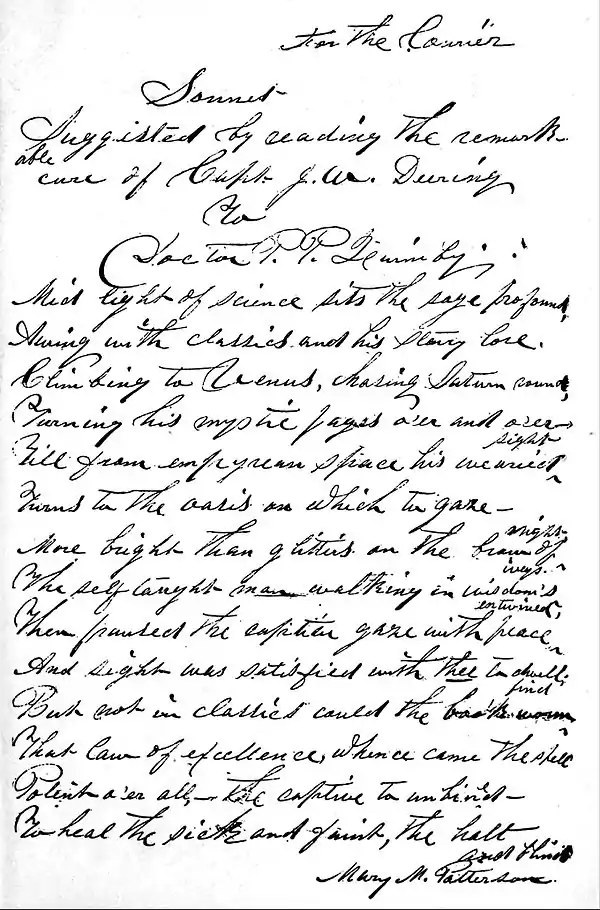 For the Courier
Sonnet
Suggested by reading the remark-
able
cure of Capt. J. W. Deering
To
Doctor P. P. Quimby.
Mid light of science sits the sage profound,
Awing with classics and his starry lore.
Climbing to Venus, chasing Saturn round,
Turning his mystic pages o'er and o'er
Till from empyrean space his wearied sight
Turns to the oasis on which to gaze –
More bright than glitters on the brow of night
The self taught man walking in wisdom's ways.
Then paused the captive gaze with peace entwined,
And sight was satisfied with thee to dwell;
But not in classics could the book worm find
That law of excellence, whence came the spell
Potent o'er all, – the captive to unbind –
To heal the sick and faint, the halt
and blind
Mary M. Patterson